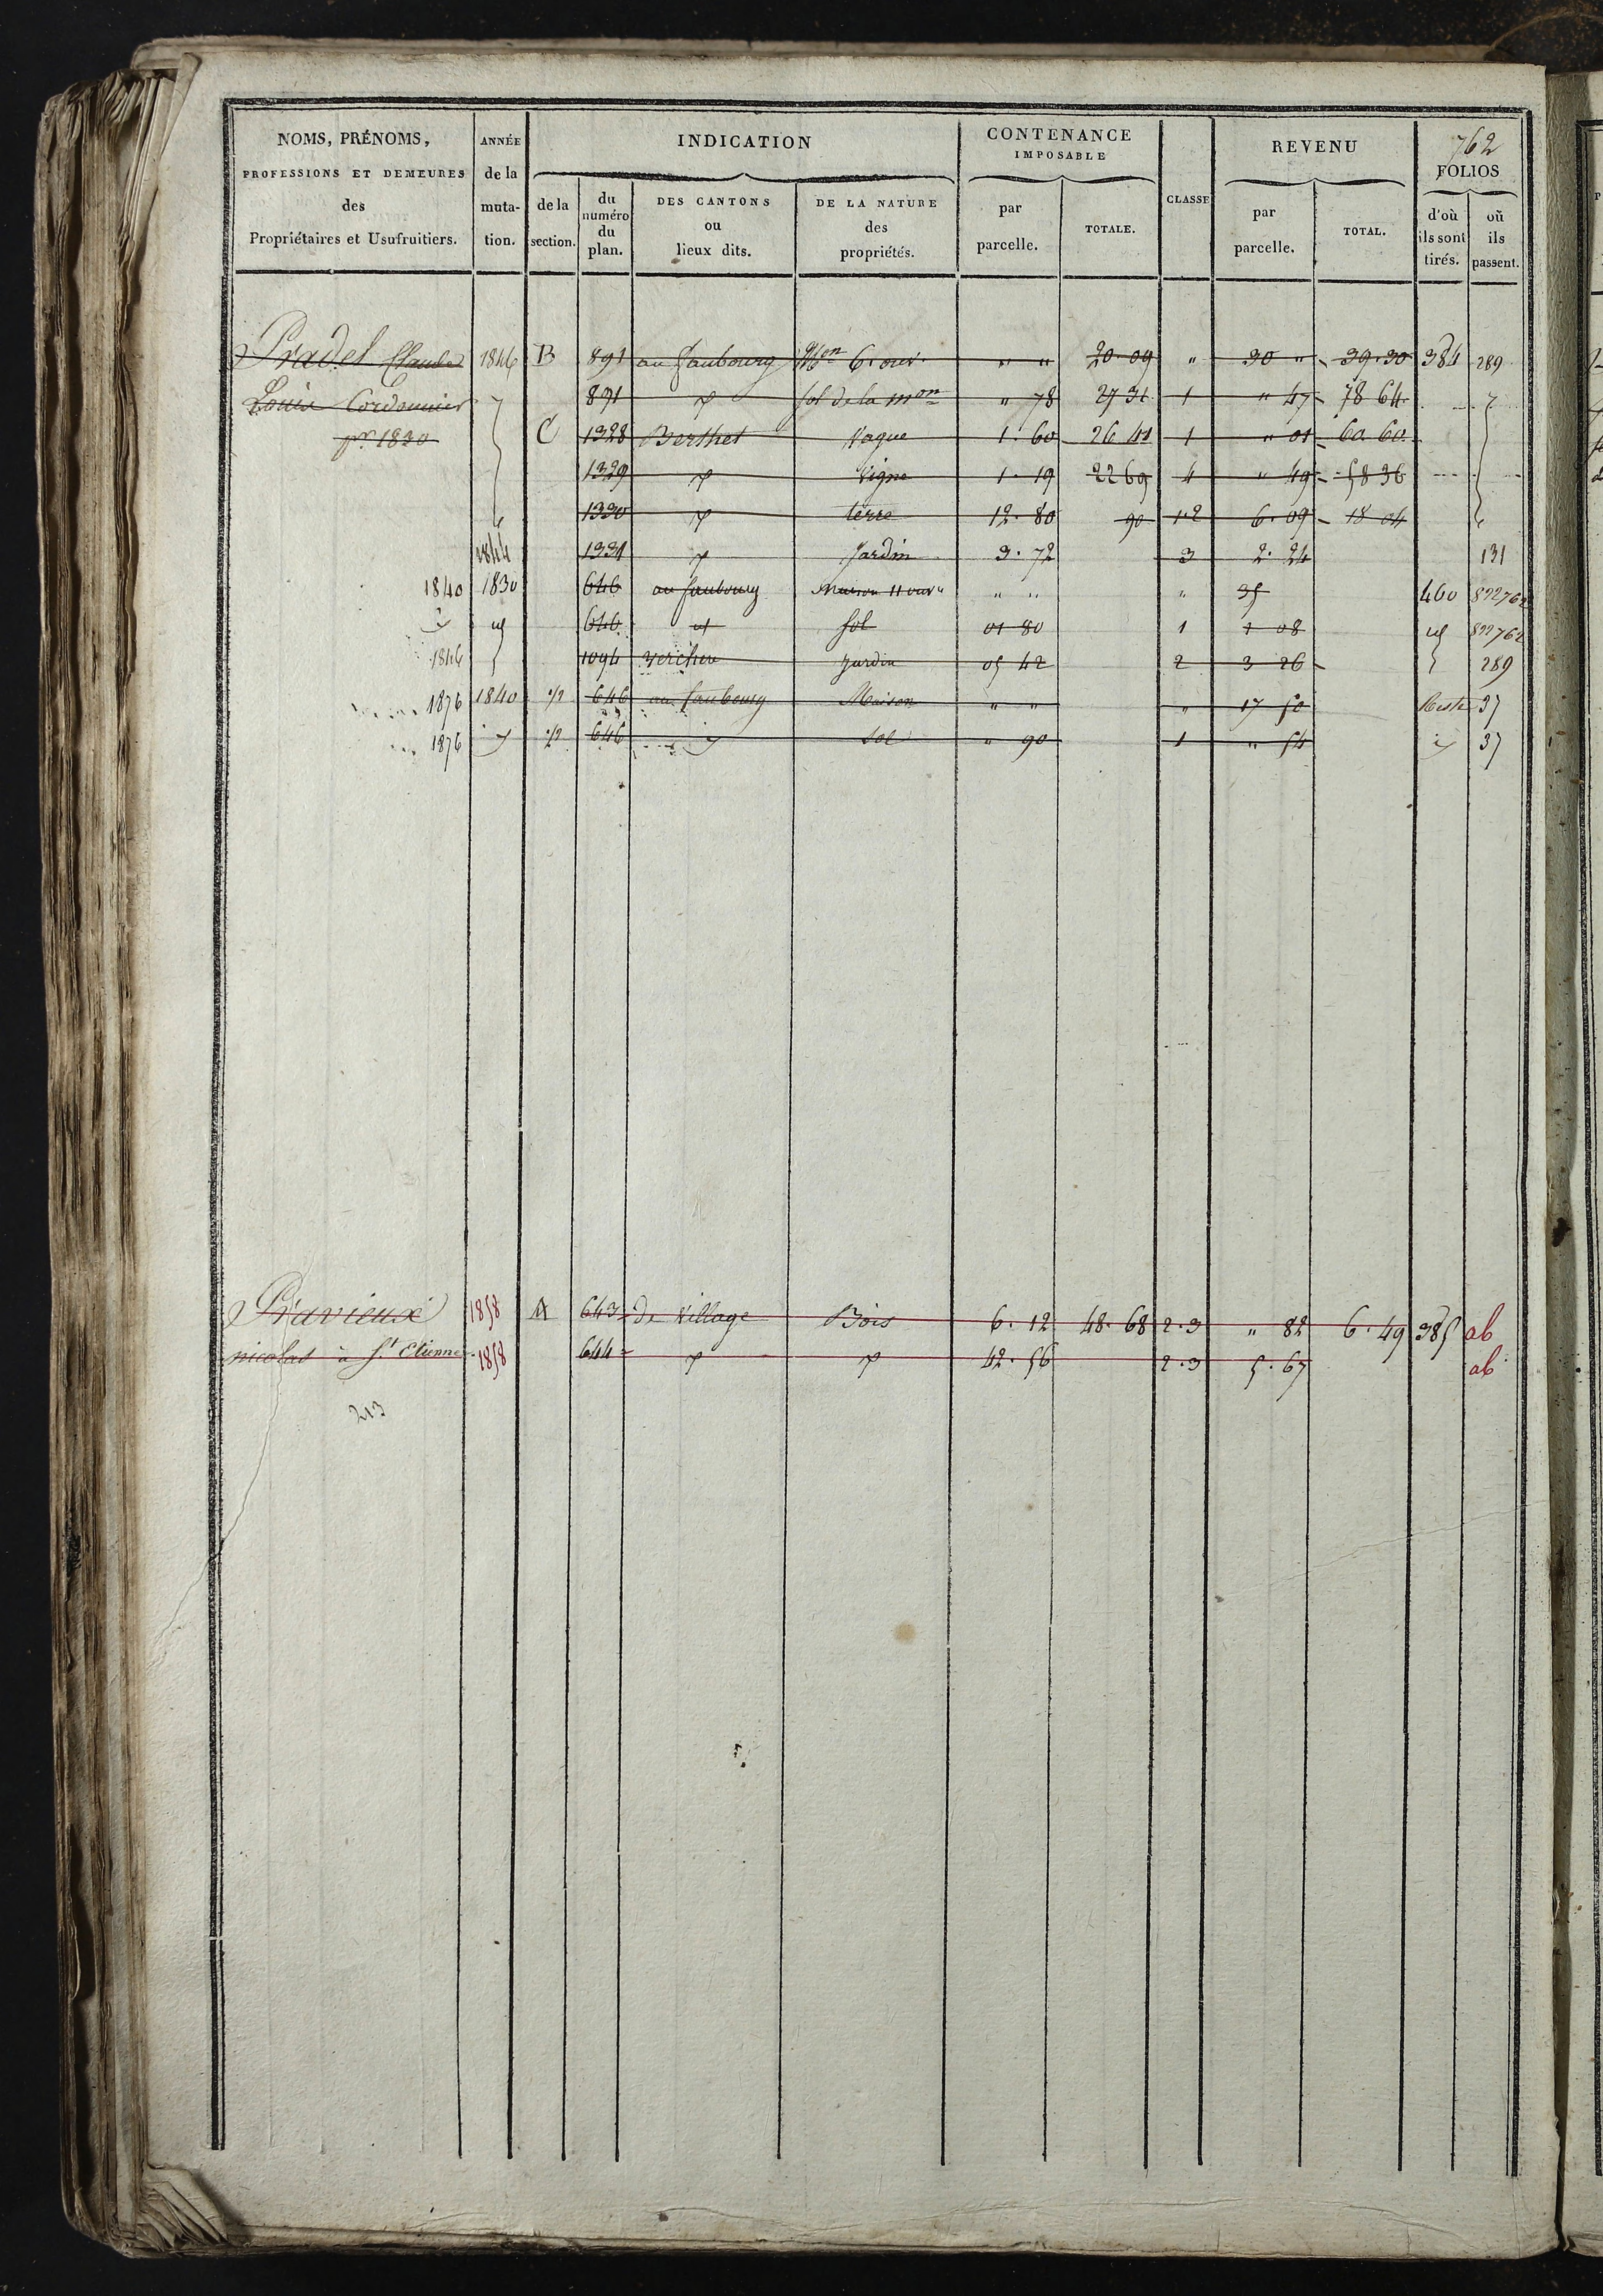 762
NOMS, PRÉNOMS, PROFESSIONS ET DEMEURES des Propriétaires et Usufruitiers.
ANNÉE de la muta- tion.
INDICATION
de la section.
du numéro du plan.
DES CANTONS ou lieux dits.
DE LA NATURE des propriétés.
CONTENANCE IMPOSABLE
par parcelle.
TOTALE.
CLASSE
REVENU
par parcelle.
TOTAL.
FOLIOS
d'où ils sont tirés.
où ils passent.
Pradel Claude 1846 B 891 au faubourg Mon 6. ouv. " " 20 09 " 30 " 39.30 384 289
Louis Cordonnier 891 sol de la mon " 78 27 31 1 " 47 78 64
pr 1830 C 1328 Berthet Vague 1. 60 26 41 1 " 01 60. 60.
1329 Vigne 1. 19 22 69 4 " 49 58 36
1330 terre 12. 80 90 1.2 6. 09 18 04
1844 1331 Jardin 3. 72 3 2. 24 131
1840 1830 646 au faubourg Maison 11 ouv " " " 35 460 822 762
646 sol 01 80 1 1 08 822 762
1846 1094 Verchere Jardin 05 42 2 3 26 289
1876 1840 1/2 646 au faubourg Maison " " " 17 50 Reste 37
1876 1/2 646 sol " 90 1 " 54 37
Pravieux 1858 A 643 de Village Bois 6. 12 48. 68 2.3 " 82 6. 49 385 ab
nicolas à St Etienne 1858 644 42. 56 2.3 5. 67 ab
213